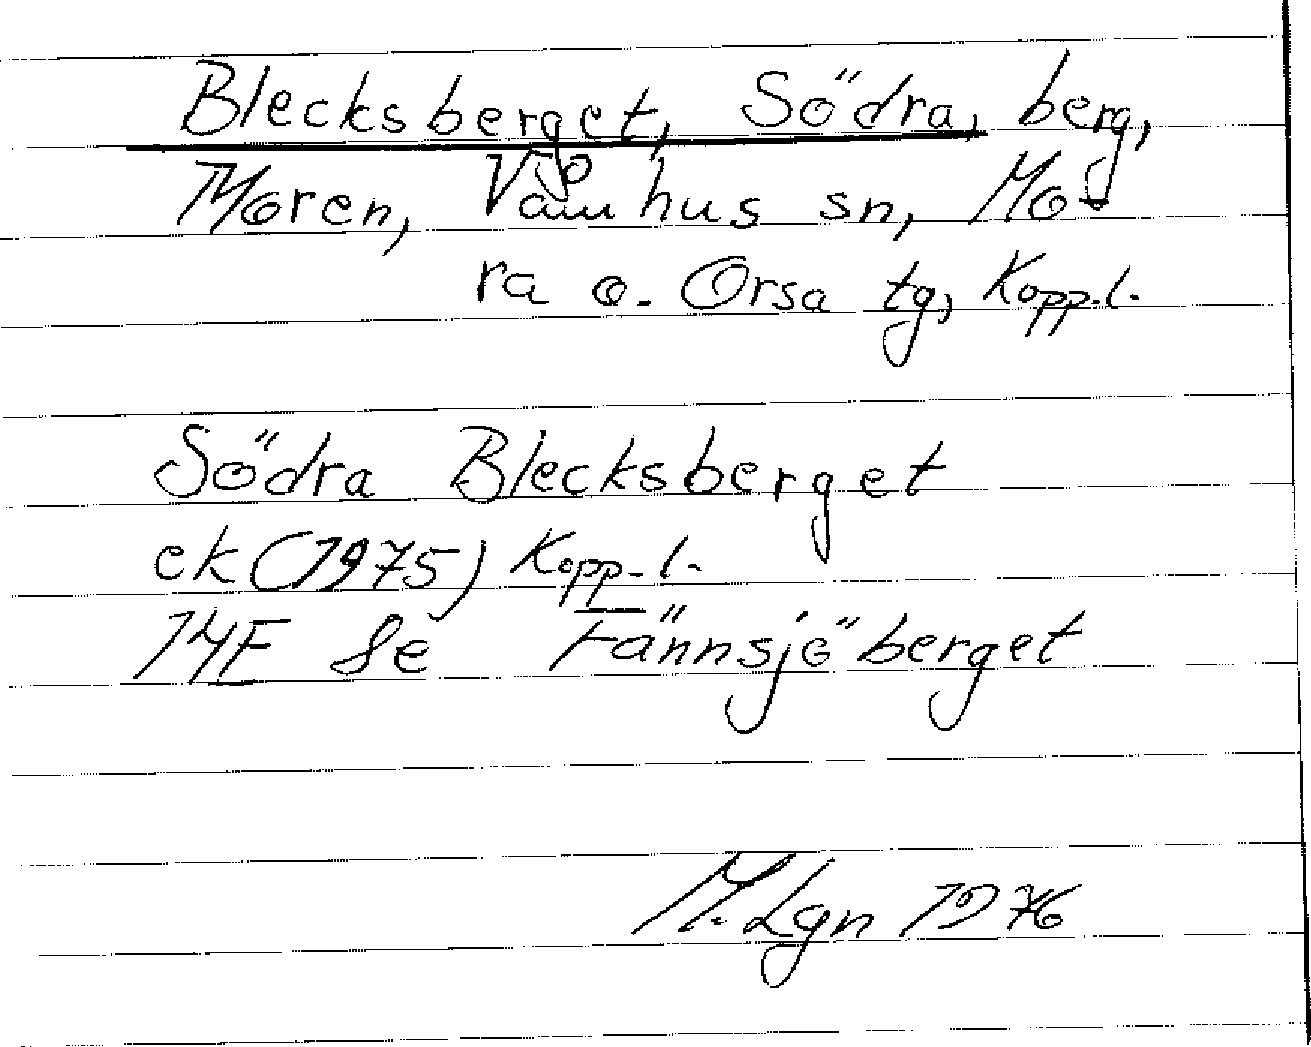 Blecksberget, Södra, berg,
Moren, Våmhus sn, Mo-
ra o. Orsa tg, Kopp.l.
Södra Blecksberget
ek (1975) Kopp.l.
14E 8e Fännsjöberget
M. Lgn 1976